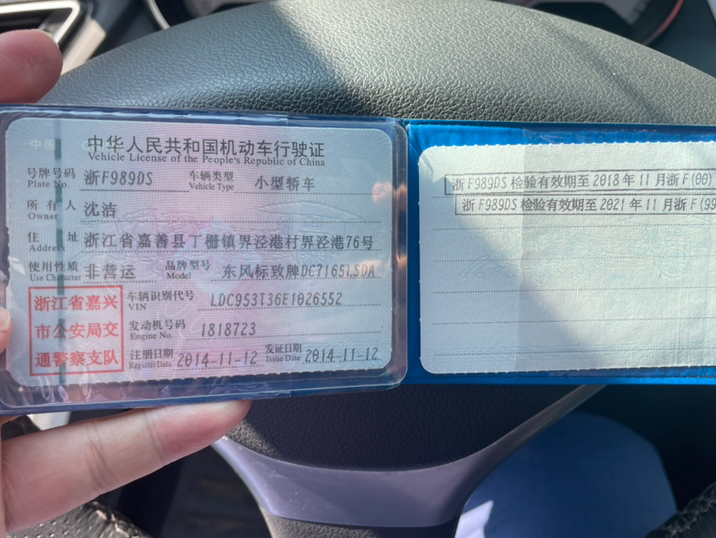 中华人民共和国机动车行驶证
Vehicle License of the People's Republic of China
号牌号码 浙F989DS 车辆类型 小型轿车
Plate No. Vehicle Type
所有人 沈洁
Owner
住址 浙江省嘉善县丁栅镇界泾港村界泾港76号
Address
使用性质 非营运 品牌型号 东风标致牌DC7165LSDA
Use Character Model
浙江省嘉兴
市公安局交
通警察支队
车辆识别代号 LDC953T36E1026552
VIN
发动机号码 1818723
Engine No.
注册日期 2014-11-12 发证日期 2014-11-12
Register Date Issue Date
浙F989DS 检验有效期至2018年11月浙F(00)
浙F989DS 检验有效期至2021年11月浙F(99